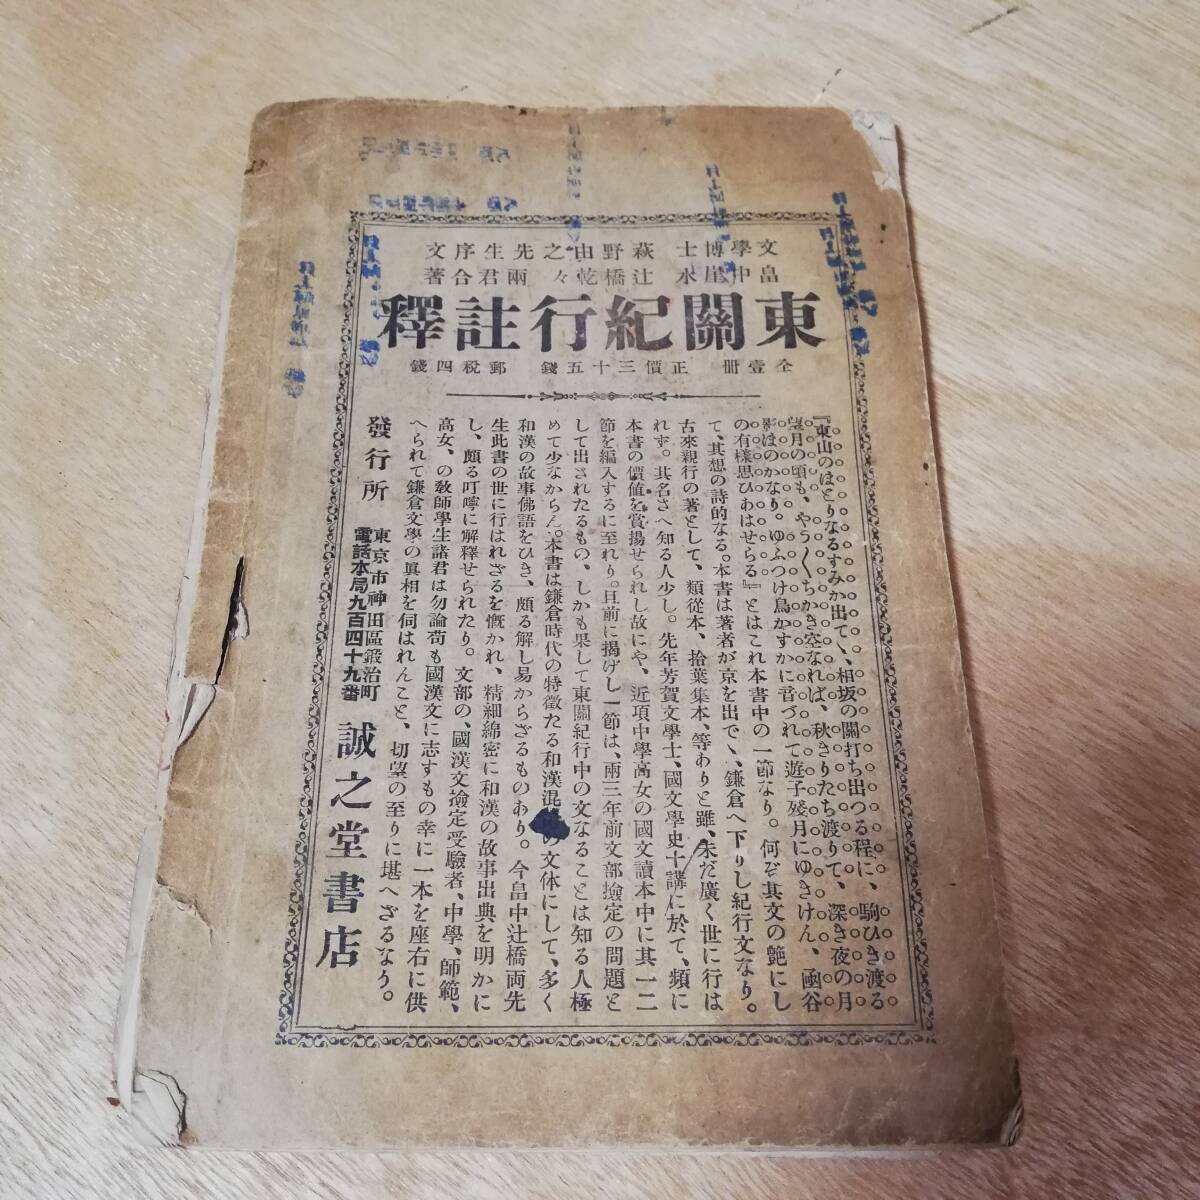 文學博士 萩野由之先生序文
畠中崖水 辻橋乾々 兩君合著
東關紀行註釋
全壹册 正價三十五錢 郵税四錢
『東山のほとりなるすみか出てゝ、相坂の關打ち出つる程に、駒ひき渡る
望月の頃も、やう〱ちかき空なれば、秋きりたち渡りて、深き夜の月
影ほのかなり。ゆふつけ鳥かすかに音づれて遊子殘月にゆきけん、凾谷
の有樣思ひあはせらる』とはこれ本書中の一節なり。何ぞ其文の艶にし
て、其想の詩的なる。本書は著者が京を出でゝ、鎌倉へ下りし紀行文なり。
古來親行の著として、類從本、拾葉集本、等ありと雖、未だ廣く世に行は
れず。其名さへ知る人少し。先年芳賀文學士、國文學史十講に於て、頻に
本書の價値を賞揚せられし故にや、近項中學高女の國文讀本中に其一二
節を編入するに至れり。且前に揭げし一節は、兩三年前文部撿定の問題と
して出されたるもの、しかも果して東關紀行中の文なることは知る人極
めて少なからん。本書は鎌倉時代の特徵たる和漢混の文体にして、多く
和漢の故事佛語をひき、頗る解し易からざるものあり。今畠中辻橋両先
生此書の世に行はれざるを慨かれ、精細綿密に和漢の故事出典を明かに
し、頗る叮嚀に解釋せられたり。文部の、國漢文撿定受驗者、中學、師範、
高女、の敎師學生諸君は勿論苟も國漢文に志すもの幸に一本を座右に供
へられて鎌倉文學の眞相を伺はれんこと、切望の至りに堪へざるなり。
發行所
東京市神田區鍛冶町
電話本局九百四十九番
誠之堂書店